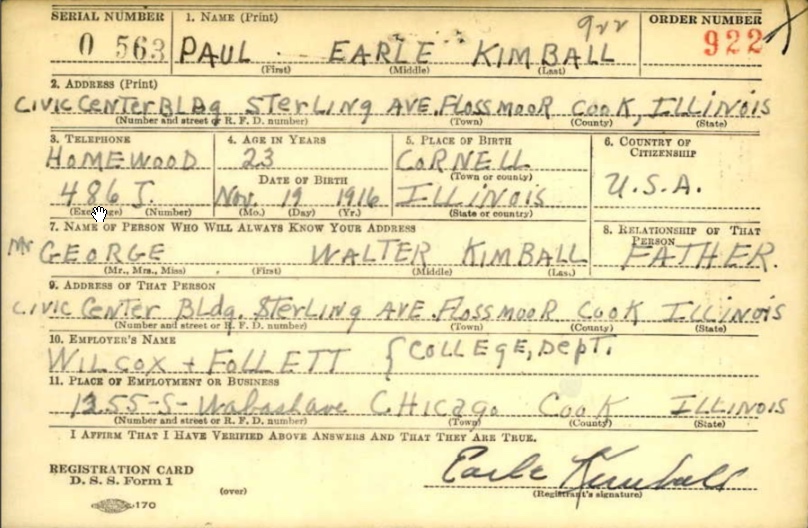 SERIAL NUMBER 1. NAME (Print) 922 ORDER NUMBER
0 563 PAUL EARLE KIMBALL 922
(First) (Middle) (Last)
2. ADDRESS (Print)
CIVIC CENTER BLDG STERLING AVE. FLOSSMOOR COOK, ILLINOIS
(Number and street or R. F. D. number) (Town) (County) (State)
3. TELEPHONE 4. AGE IN YEARS 5. PLACE OF BIRTH 6. COUNTRY OF CITIZENSHIP
HOMEWOOD 23 CORNELL
(Town or county)
DATE OF BIRTH U.S.A.
486 J. Nov. 19 1916 ILLINOIS
(Exchange) (Number) (Mo.) (Day) (Yr.) (State or country)
7. NAME OF PERSON WHO WILL ALWAYS KNOW YOUR ADDRESS 8. RELATIONSHIP OF THAT PERSON
Mr GEORGE WALTER KIMBALL FATHER.
(Mr., Mrs., Miss) (First) (Middle) (Last)
9. ADDRESS OF THAT PERSON
CIVIC CENTER BLDG. STERLING AVE. FLOSSMOOR COOK ILLINOIS
(Number and street or R. F. D. number) (Town) (County) (State)
10. EMPLOYER'S NAME
WILCOX + FOLLETT { COLLEGE, DEPT.
11. PLACE OF EMPLOYMENT OR BUSINESS
1255-S-Wabash ave CHICAGO COOK ILLINOIS
(Number and street or R. F. D. number) (Town) (County) (State)
I AFFIRM THAT I HAVE VERIFIED ABOVE ANSWERS AND THAT THEY ARE TRUE.
REGISTRATION CARD
D. S. S. Form 1 Earle Kimball
(over) (Registrant's signature)
170